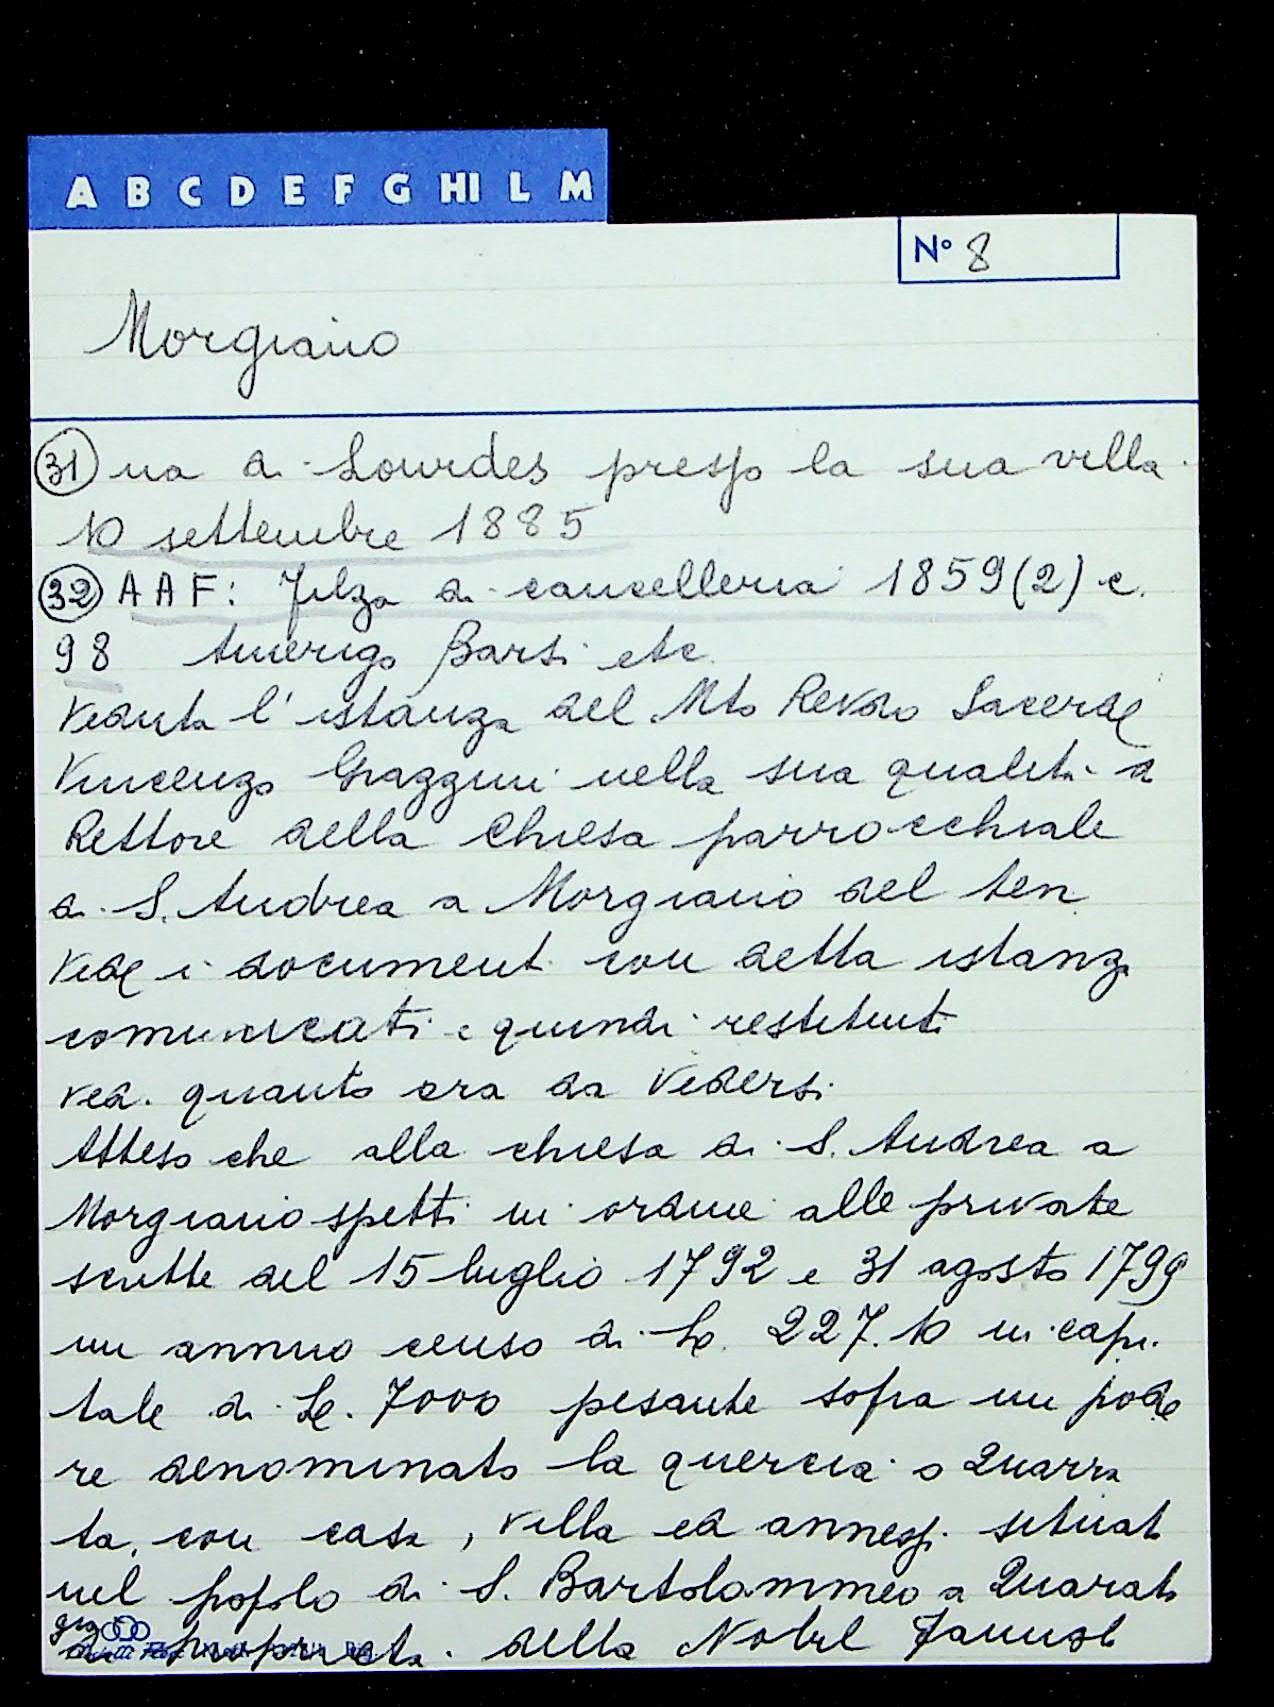 A B C D E F G HI L M
N° 8
Morgiano
31 na di Lourdes presso la sua villa.
10 settembre 1885
32 AAF: Filza di cancelleria 1859(2) c.
98 Amerigo Barsi etc
Veduta l'istanza del Mto Revdo Sacerde
Vincenzo Grazzini nella sua qualità di
Rettore della Chiesa parrocchiale
di S. Andrea a Morgiano del ten
Vede i documenti con detta istanz
comunicati e quindi restituiti
ved. quanto era da Vedersi
Atteso che alla chiesa di S. Andrea a
Morgiano spetti in ordine alle private
scritte del 15 luglio 1792 e 31 agosto 1799
un annuo censo di Le. 227.10 in capi.
tale di Le. 7000 pesante sopra un pode
re denominato la quercia o Quarra
ta, con casa, villa ed annessi situati
nel popolo di S. Bartolommeo a Quarata
già di proprietà della Nobil Famigl